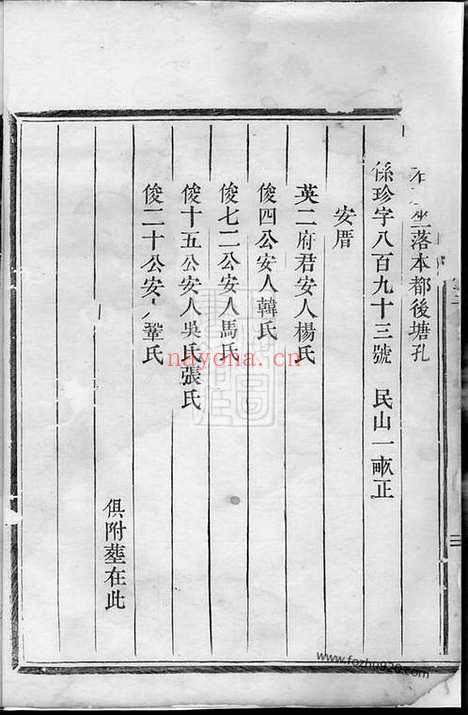 坐落本都後塘孔
係珍字八百九十三號　民山一畝正
安厝
英二府君安人楊氏
俊四公安人韓氏
俊七二公安人馬氏
俊十五公安人吳氏張氏
俊二十公安人鞏氏
俱附塟在此
nayona.cn
www.fozhu920.com